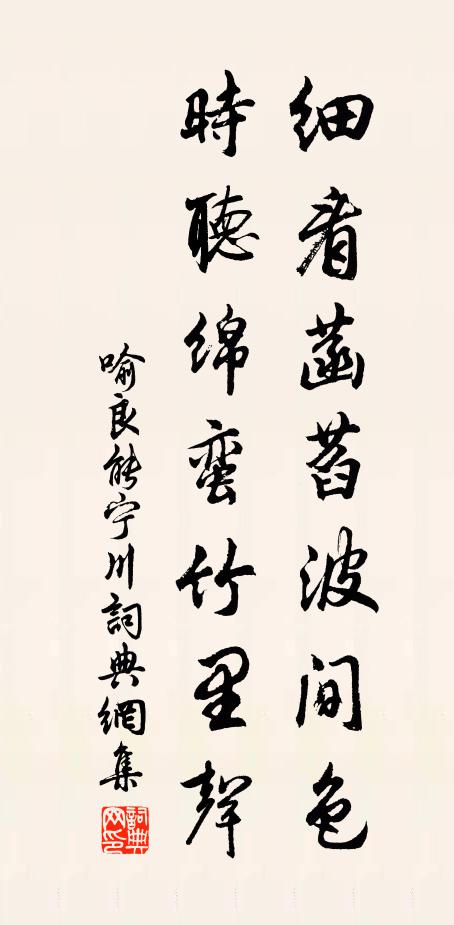 细看菡萏波间色
時聽綿蛮竹里聲
喻良能宁川詞典網集
詞典網印